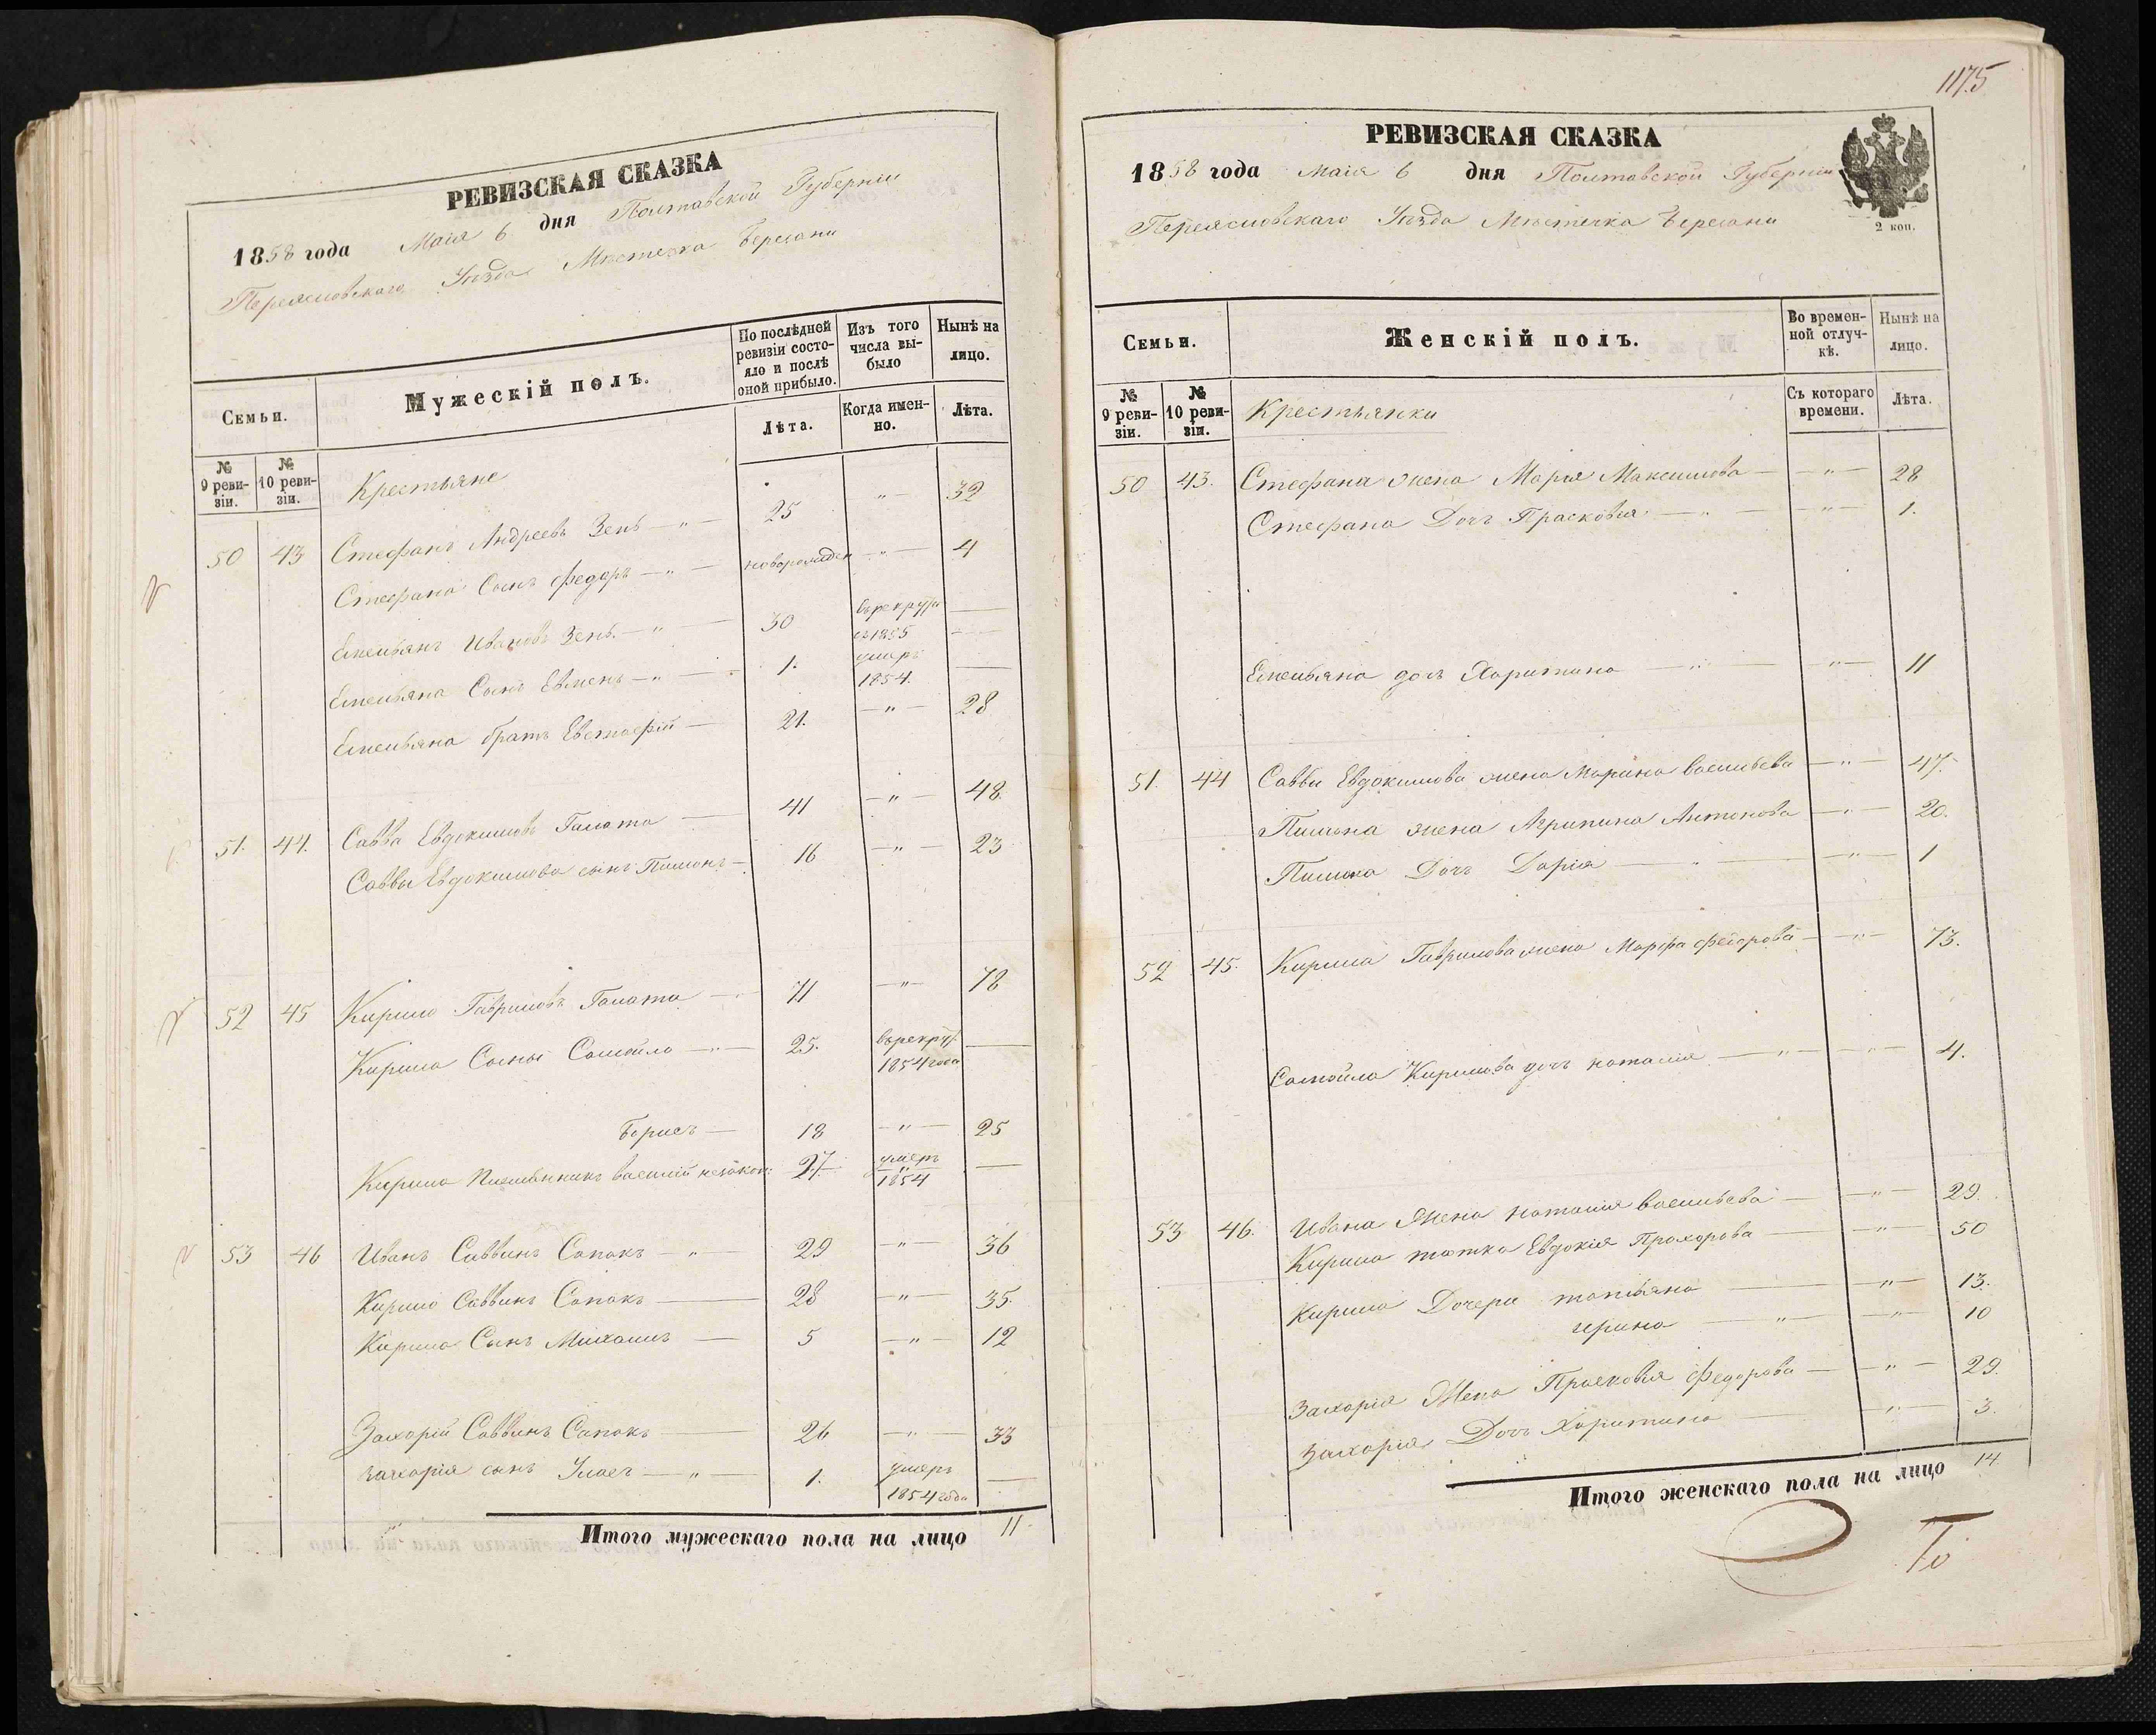 РЕВИЗСКАЯ СКАЗКА
1858 года Маія 6 дня Полтавской Губерніи
Переясловскаго Уѣзда Мѣстечка Березани
Семьи.
Мужескій полъ.
По послѣдней ревизіи состояло и послѣ оной прибыло.
Изъ того числа выбыло
Нынѣ на лицо.
Лѣта.
Когда именно.
Лѣта.
№ 9 ревизіи.
№ 10 ревизіи.
Крестьяне
50 43 Стефанъ Андреевъ Зень — " — 25 — " — 32
Стефана Сынъ Федоръ — " — новорожден — " — 4
Емельянъ Ивановъ Зень — " — 30 въ рекруты
въ 1855
Емельяна Сынъ Евмень — " — 1. умеръ
1854.
Емельяна братъ Евстафій — 21. — " — 28
51. 44. Савва Евдокимовъ Галата — 41 — " — 48.
Саввы Евдокимова сынъ Пилипъ — 16 — " — 23
52 45 Кирило Гавриловъ Галата — 71 — " — 78
Кирила Сыны Самойло — " — 25. въ рекруты
1854 года
Борисъ — 18 — " — 25
Кирила Племянникъ Василій незакон: 27. умеръ
1854
53 46 Иванъ Саввинъ Сапакъ — " — 29 — " — 36
Кирило Саввинъ Сапакъ — 28 — " — 35.
Кирила Сынъ Михаилъ — 5 — " — 12
Захарій Саввинъ Сапакъ — 26 — " — 33
Захарія сынъ — " — 1. умеръ
1854 года
Итого мужескаго пола на лицо 11
1175
РЕВИЗСКАЯ СКАЗКА
1858 года Маія 6 дня Полтавской Губерніи
Переясловскаго Уѣзда Мѣстечка Березани
2 коп.
Семьи.
Женскій полъ.
Во временной отлучкѣ.
Нынѣ на лицо.
№ 9 ревизіи.
№ 10 ревизіи.
Крестьянки
Съ котораго времени.
Лѣта.
50 43. Стефана жена Марія Максимова — " — 28
Стефана Дочь Прасковія — " — 1.
Емельяна дочь Харитина — " — 11
51. 44 Саввы Евдокимова жена Марина Васильева — " — 47.
Пилипа жена Агрипина Антонова — " — 20.
Пилипа Дочь Дарія — " — 1
52 45. Кирила Гаврилова жена Марфа Федорова — " — 73.
Самойла Кирилова дочь Наталія — " — 4.
53 46. Ивана Жена Наталія Васильева — " — 29.
Кирила тютка Евдокія Прохорова — " — 50
Кирила Дочери Татьяна — " — 13.
Ирина — " — 10
Захарія Жена Прасковія Федорова — " — 29.
Захарія Дочь Харитина — " — 3.
Итого женскаго пола на лицо 14